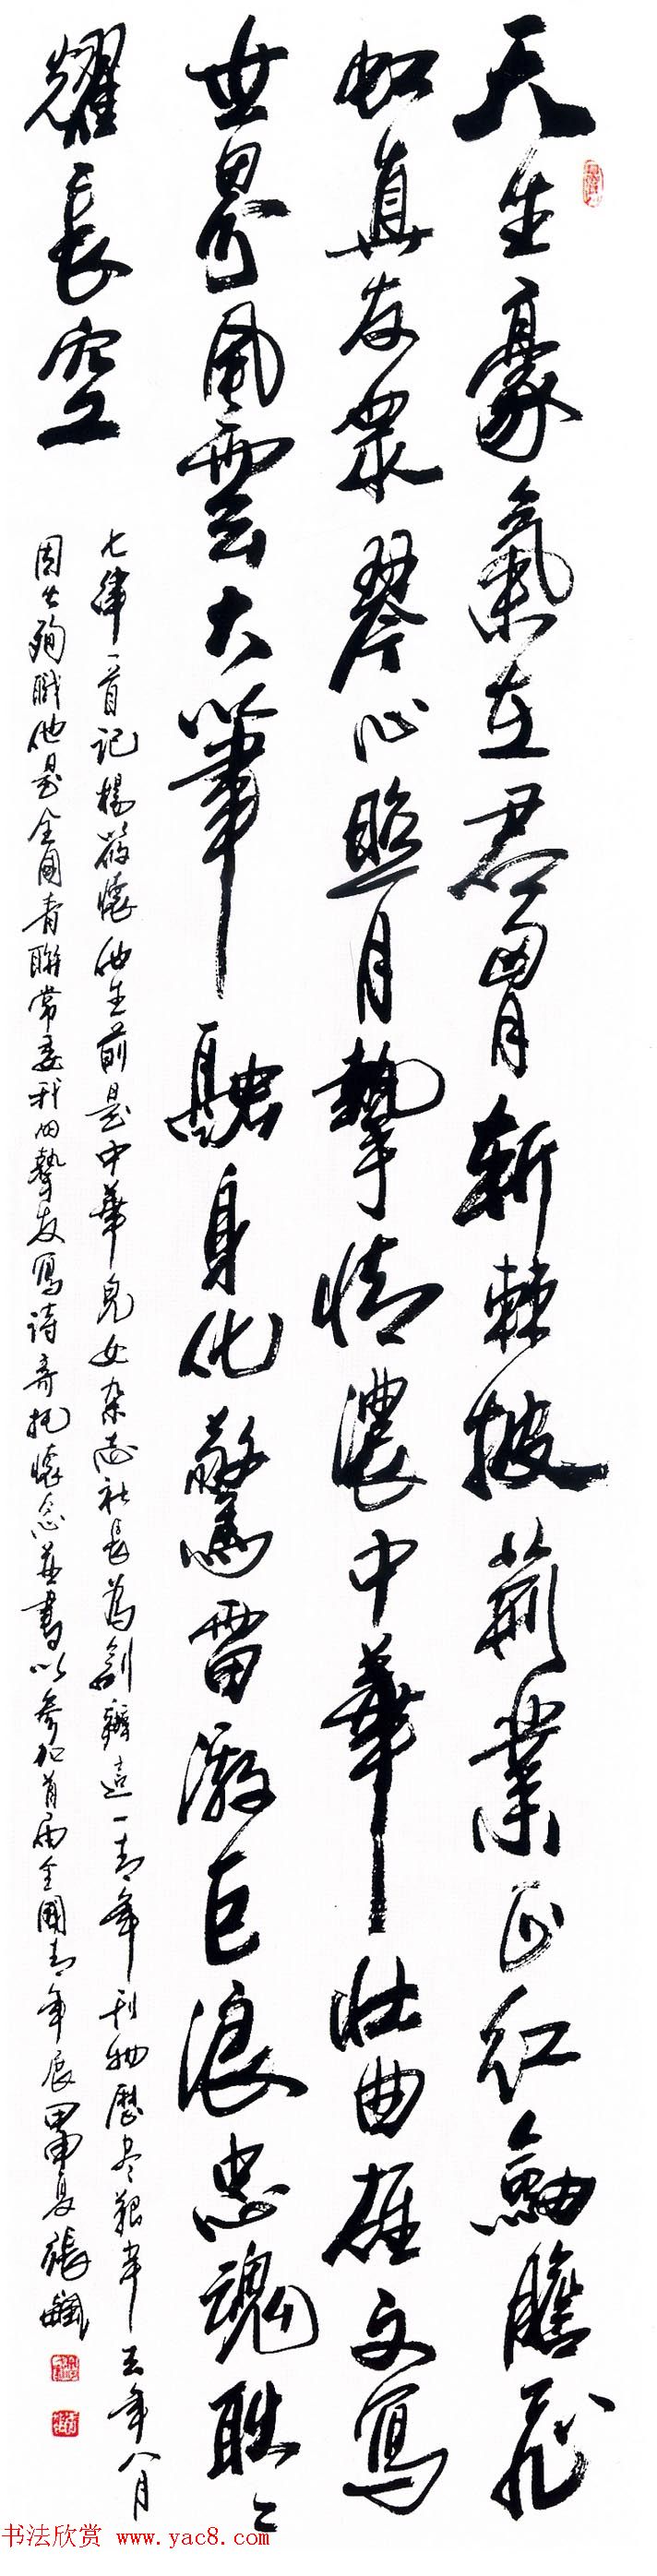 天生豪氣在君胷斬棘披荊業正紅劍膽飛
虹真友眾琴心照月摯情濃中華壯曲雄文寫
世界風雲大筆融身化驚雷激巨浪忠魂耿々
耀長空
七律一首記楊筱懷他生前是中華兒女杂志社長為創辦這一青年刊物歷尽艱辛去年八月
因公殉職他是全國青聯常委我的摯友寫詩寄托懷念並書以參加首屆全國青年展甲申夏張
书法欣赏 www.yac8.com